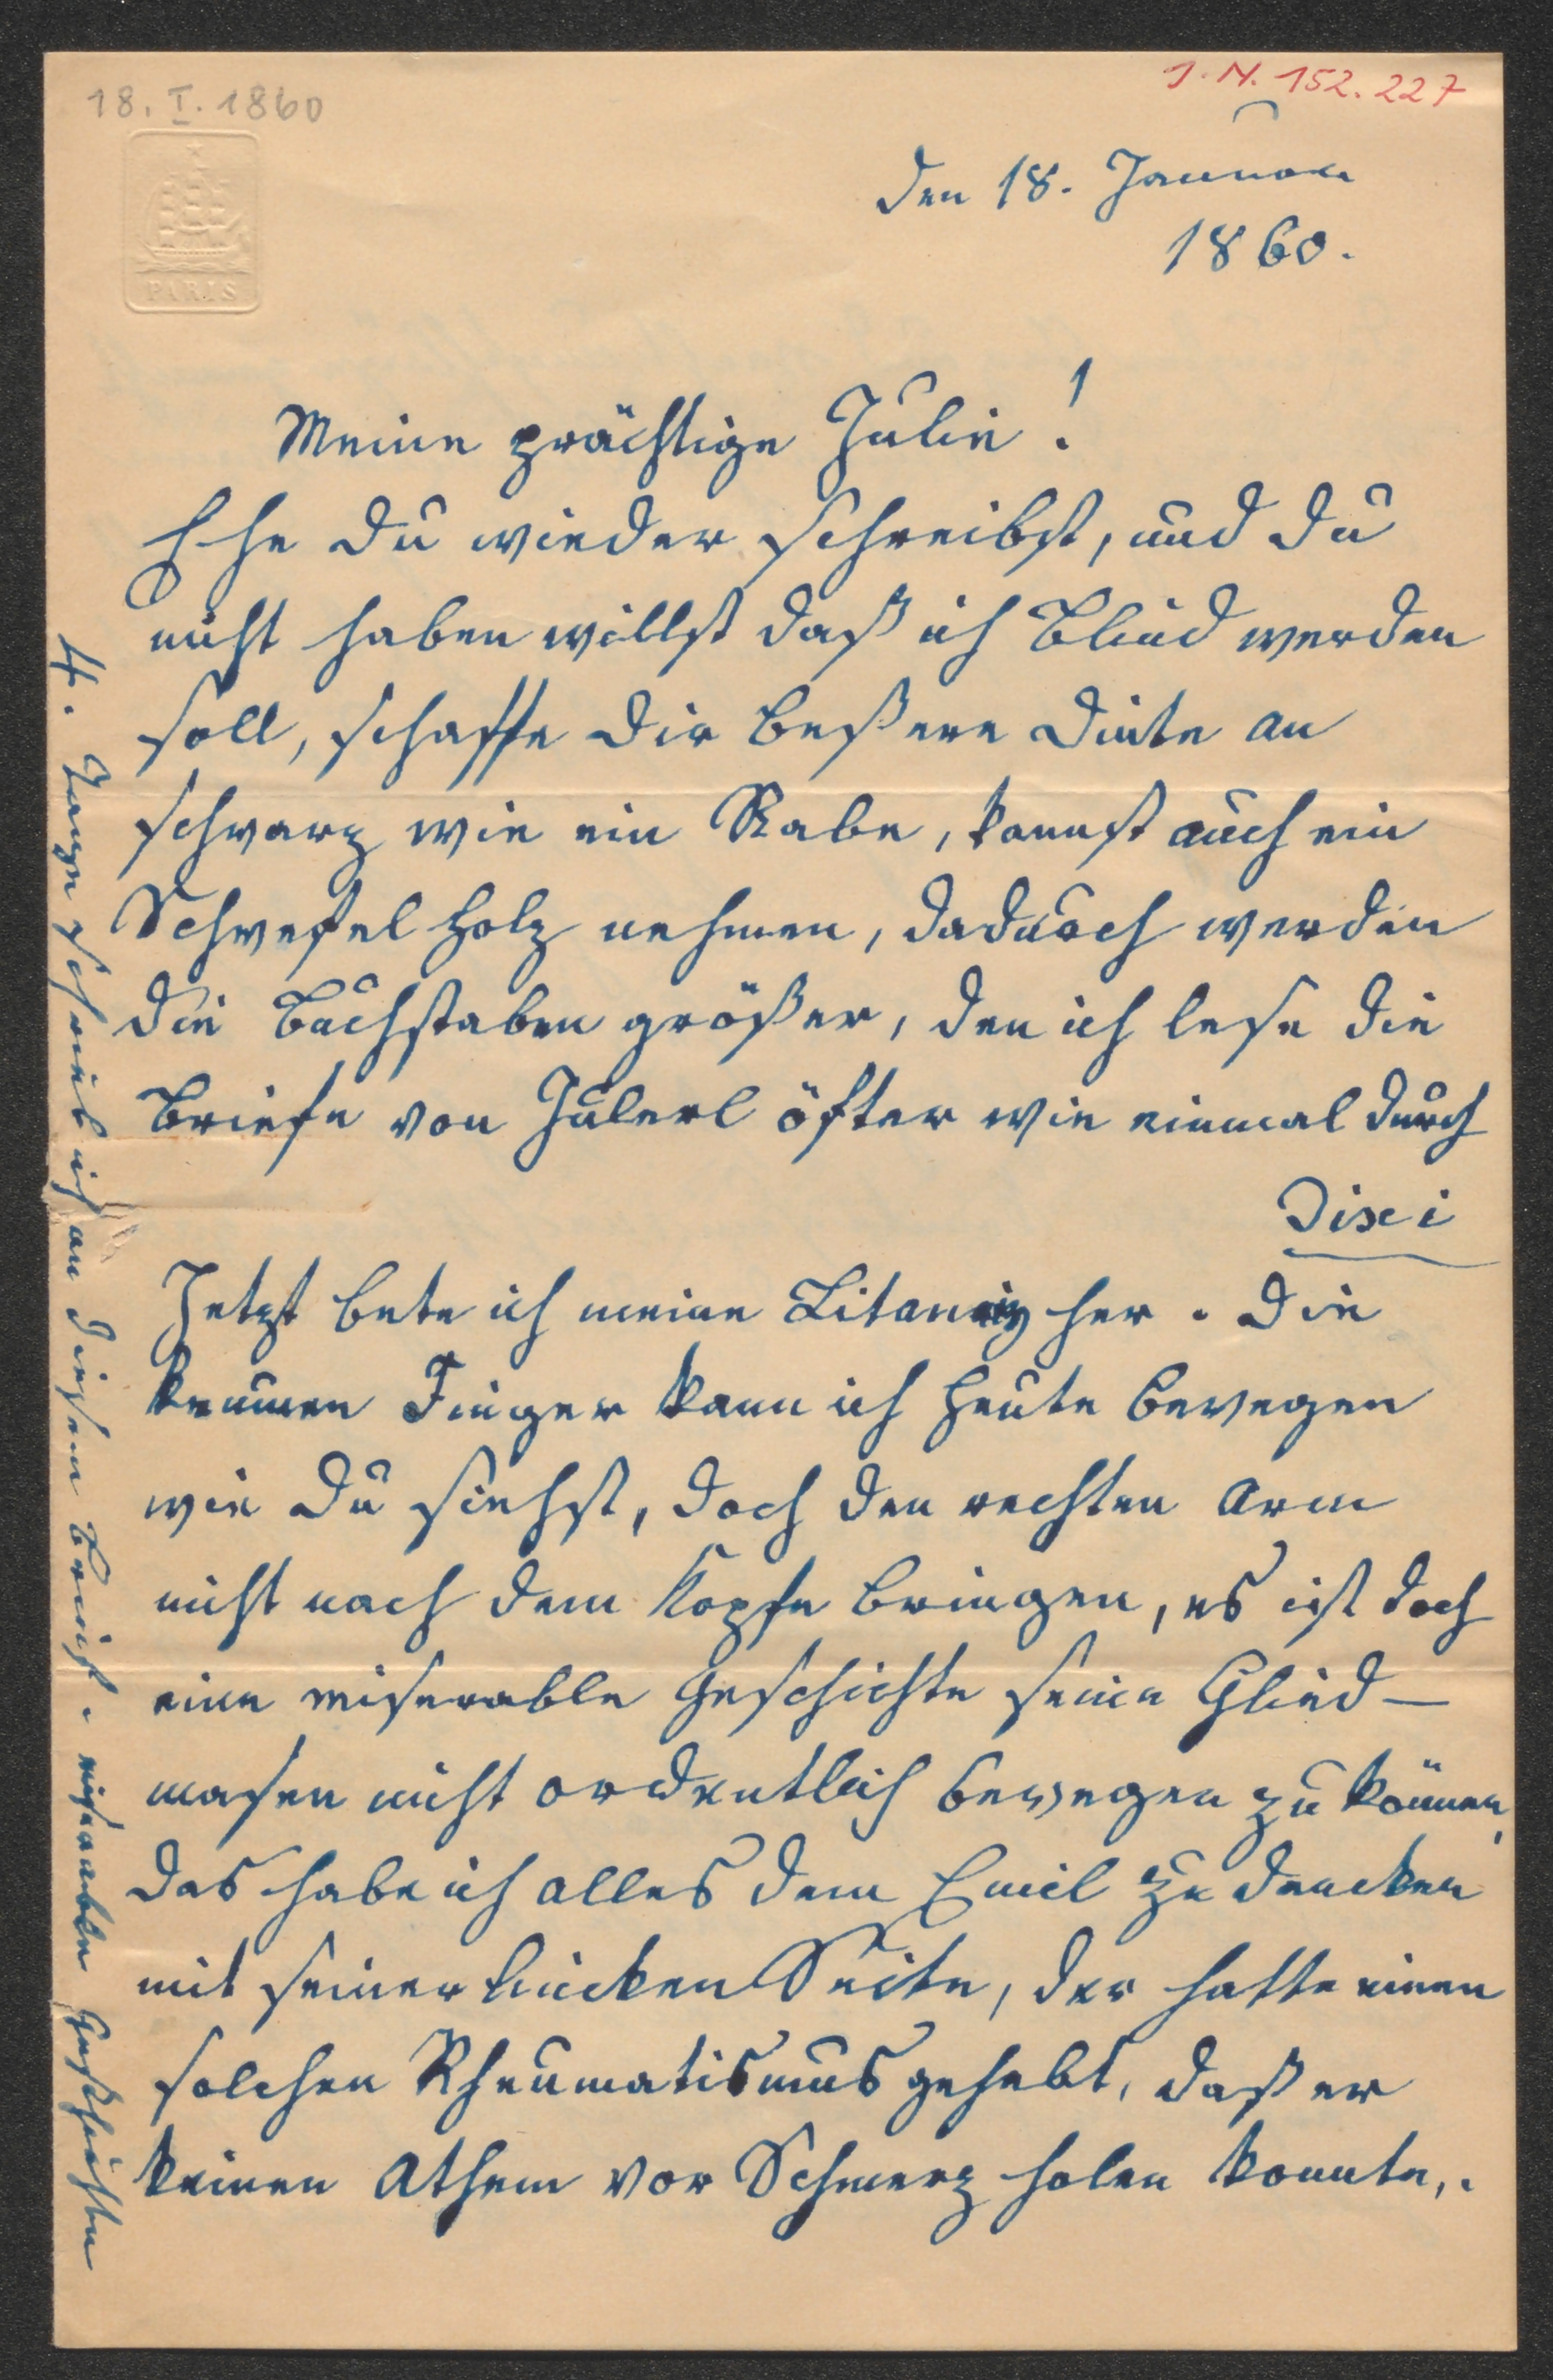 18. I. 1860
I. N. 152.227
PARIS
den 18. Januar
1860.
Meine prächtige Julie!
Ehe Du wieder schreibst, und Du
nicht haben willst daß ich Blind werden
soll, schaffe Dir beßere Dinte an
schwarz wie ein Rabe, kannst auch ein
Schwefel Holz nehmen, dadurch werden
die Buchstaben größer, den ich lese die
Briefe von Julerl öfter wie einmal durch
Dixi
Jetzt bete ich meine Litaney her. Die
krumen Finger kann ich heute bewegen
wie Du siehst, doch den rechten Arm
nicht nach dem Kopfe bringen, es ist doch
eine miserable Geschichte seine Glied-
masen nicht ordentlich bewegen zu können,
das habe ich alles dem Emil zu dancken
mit seiner lincken Seite, der hatte einen
solchen Rheumatismus gehabt, daß er
keinen Athem vor Schmerz holen konnte,.
4. Tage schreib ich an diesem Brief. miserable Geschichte